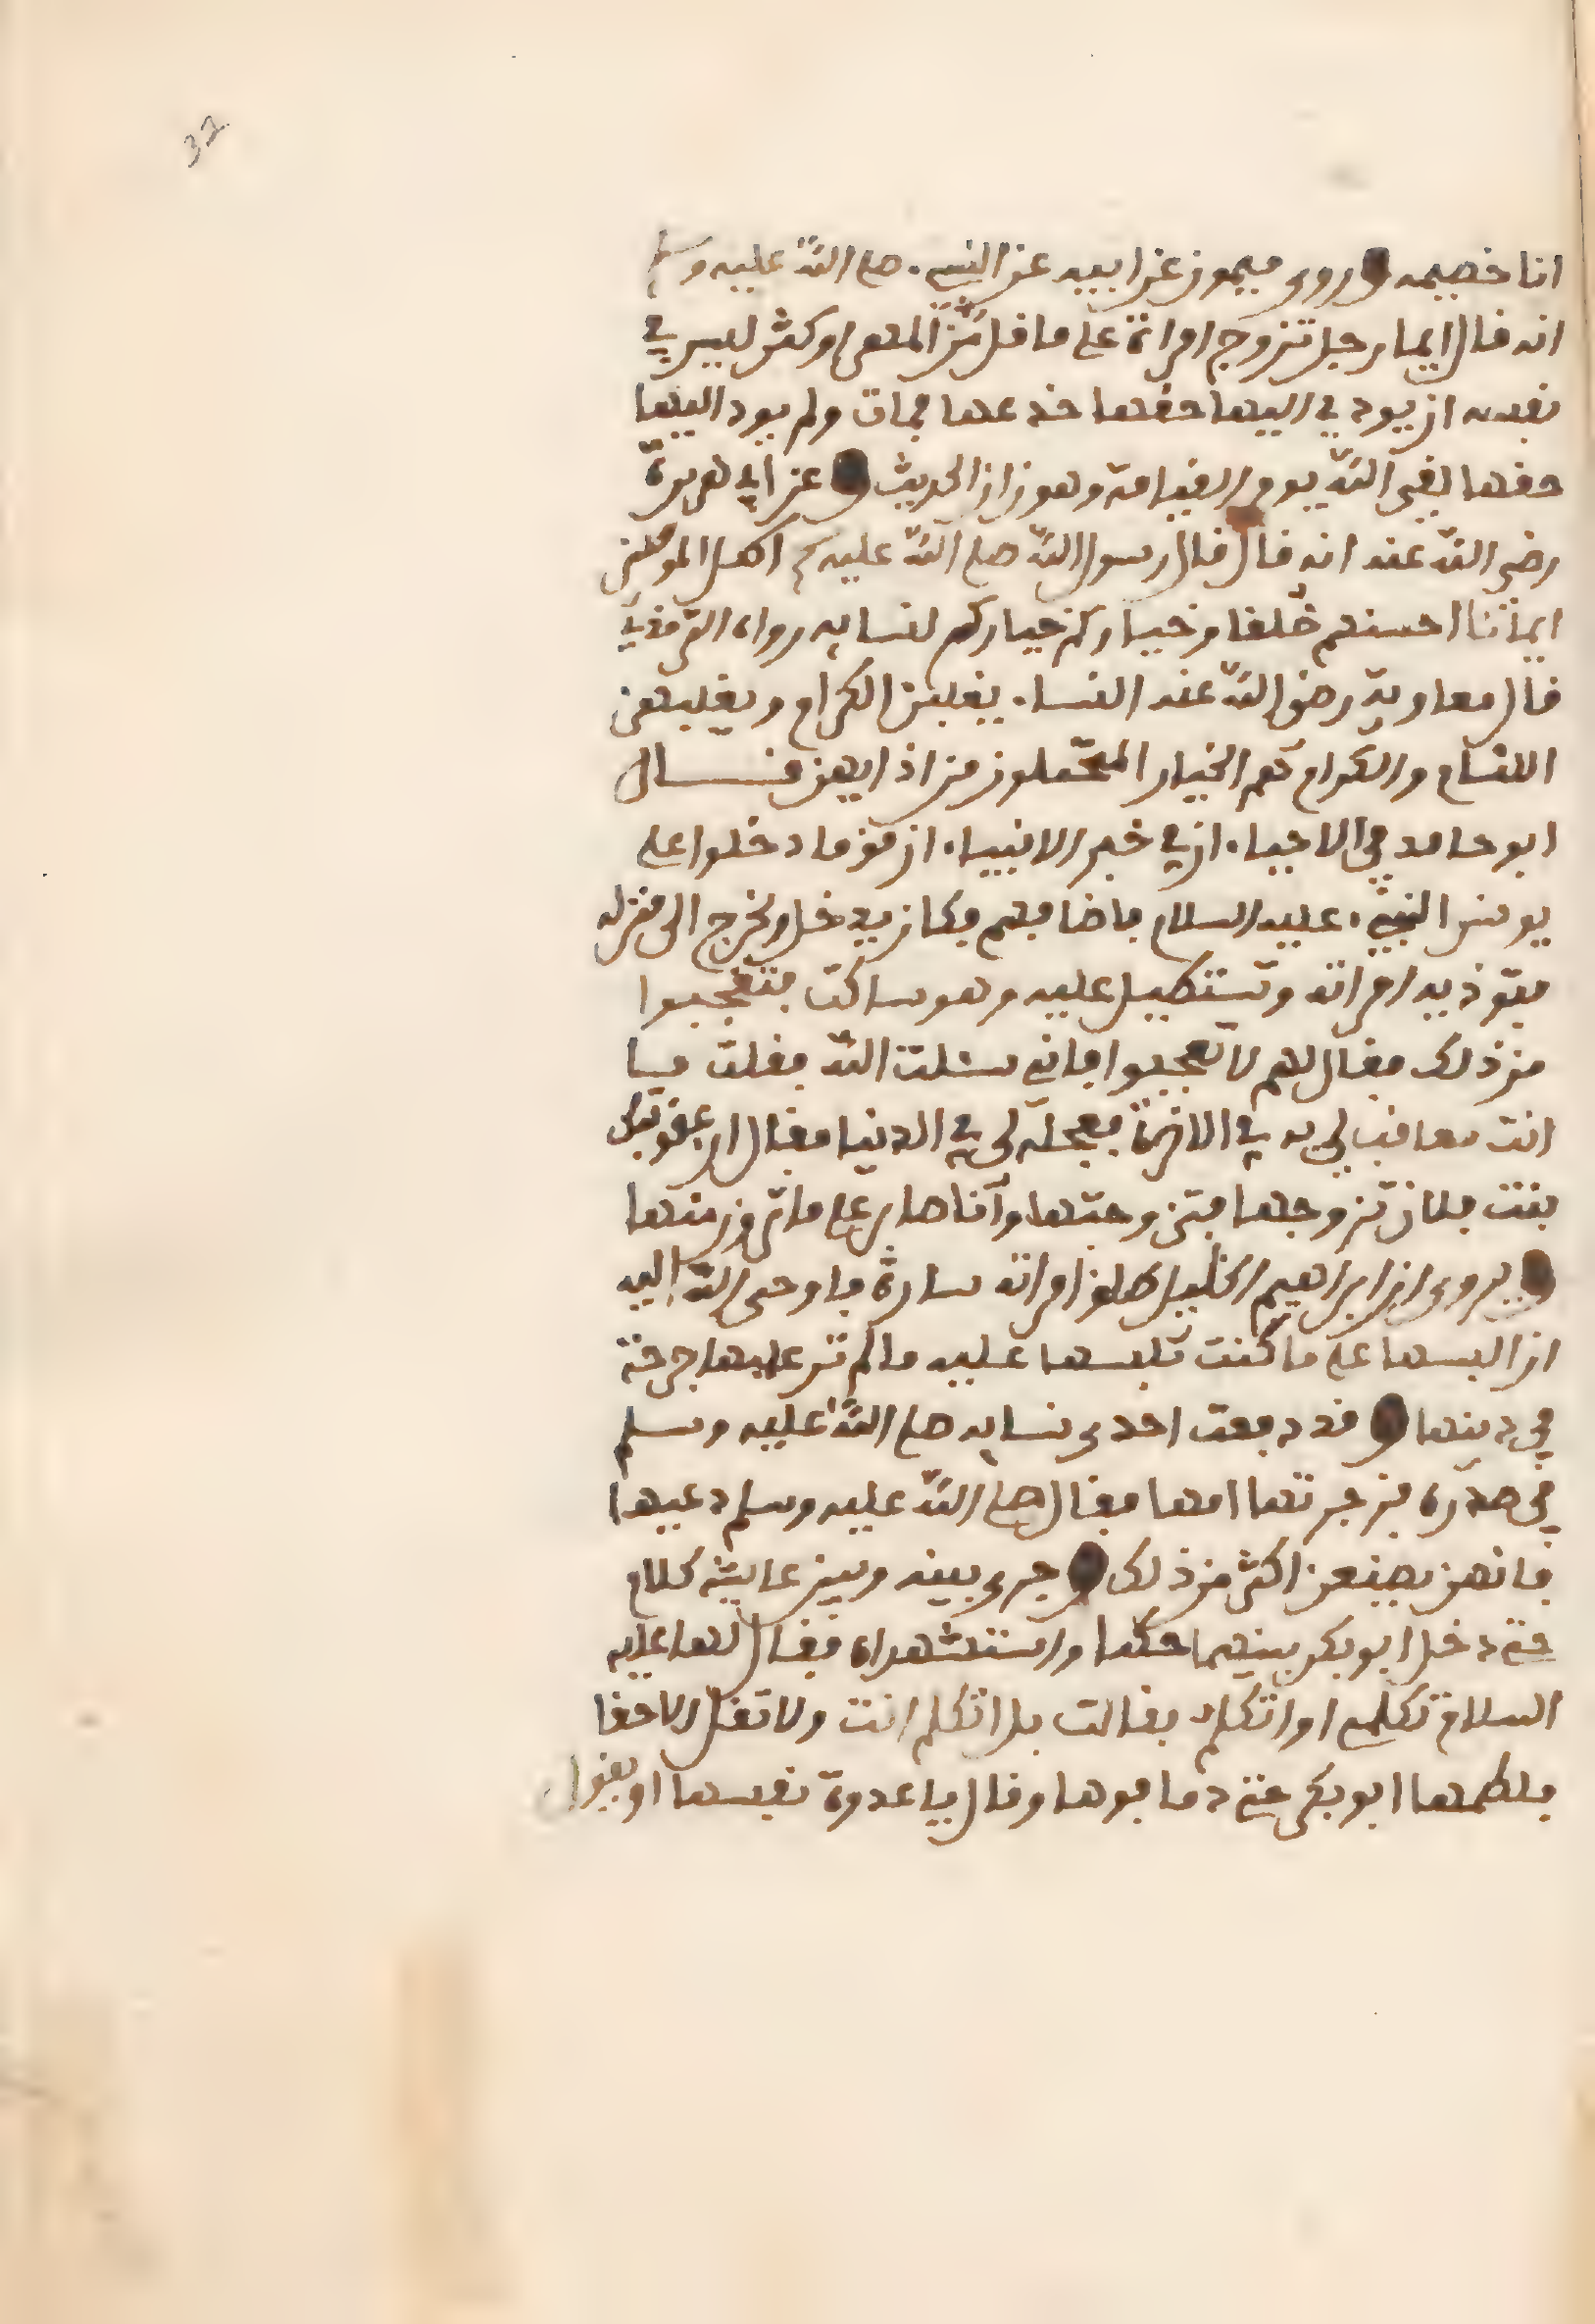 32
انا خصيمه وروى ميمون عن ابيه عن النبيء صلى الله عليه وسلم
انه قال ايما رجل تزوج امراة على ما قل من المهر او كثر ليس في
نفسه ان يودي اليها حقها خدعها فمات ولم يود اليها
حقها لقي الله يوم القيامة وهو زان الحديث وعن ابي هريرة
رضي الله عنه انه قال قال رسول الله صلى الله عليه اكمل المومنين
ايمانا احسنهم خلقا وخياركم خياركم لنسايه رواه الترمذي
قال معاوية رضي الله عنه النساء يغلبن الكرام ويغلبهن
اللئام والكرام هم الخيار المتحملون من اذايهن قال
ابو حامد في الاحياء ان في خبر الانبياء ان قوما دخلوا على
يونس النبيء عليه السلام فاضافهم فكان يدخل ويخرج الى منزله
فتوذيه امراته وتستطيل عليه وهو ساكت فتعجبوا
من ذلك فقال لهم لا تعجبوا فاني سئلت الله فقلت ما
انت معاقب لي به في الاخرة فعجله لي في الدنيا فقال ان عقوبتك
بنت فلان تزوجها فتزوجتها وانا صابر على ما ترون منها
ويروى ان ابراهيم الخليل امراته سارة فاوحى الله اليه
ان البسها على ما كنت تلبسها عليه ما لم تر عليها خربة
في دينها وقد دفعت احدى نسايه صلى الله عليه وسلم
في صدره فزجرتها امها فقال صلى الله عليه وسلم دعيها
فانهن يصنعن اكثر من ذلك وجرى بينه وبين عايشة كلام
حتى دخل ابو بكر بينهما حكما واستشهداه فقال لها عليه
السلام تكلمي او اتكلم فقالت بل اتكلم انت ولا تقل الا حقا
فلطمها ابو بكر حتى دما فوها وقال يا عدوة نفسها او يقول